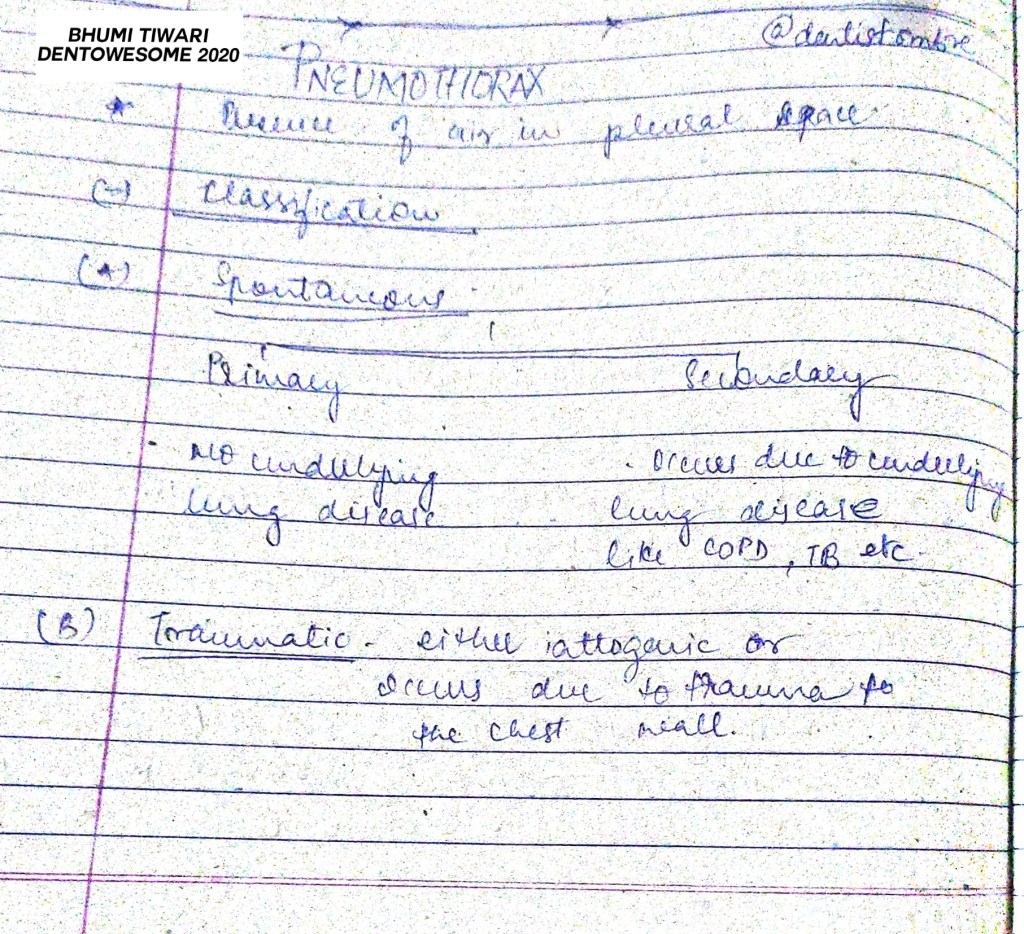 BHUMI TIWARI
DENTOWESOME 2020
PNEUMOTHORAX
Presence of air in pleural space
(-) Classification
(A) Spontaneous
Primary Secondary
. No underlying . occurs due to underlying
lung disease lung disease
like COPD, TB etc.
(B) Traumatic - either iattogenic or
occurs due to trauma to
the chest wall.